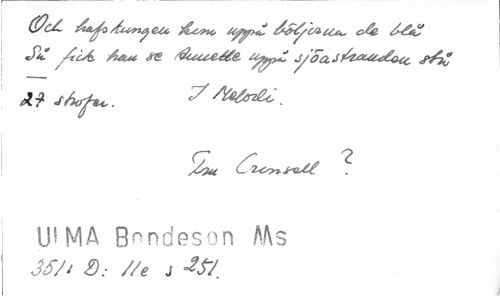 Och hafskungen kom uppå böljorna de blå
Så fick han se Annette uppå sjöastranden stå
27 strofer. 1 Melodi.
Fru Cronsell ?
ULMA Bondeson Ms
351: D: 11e s 251.